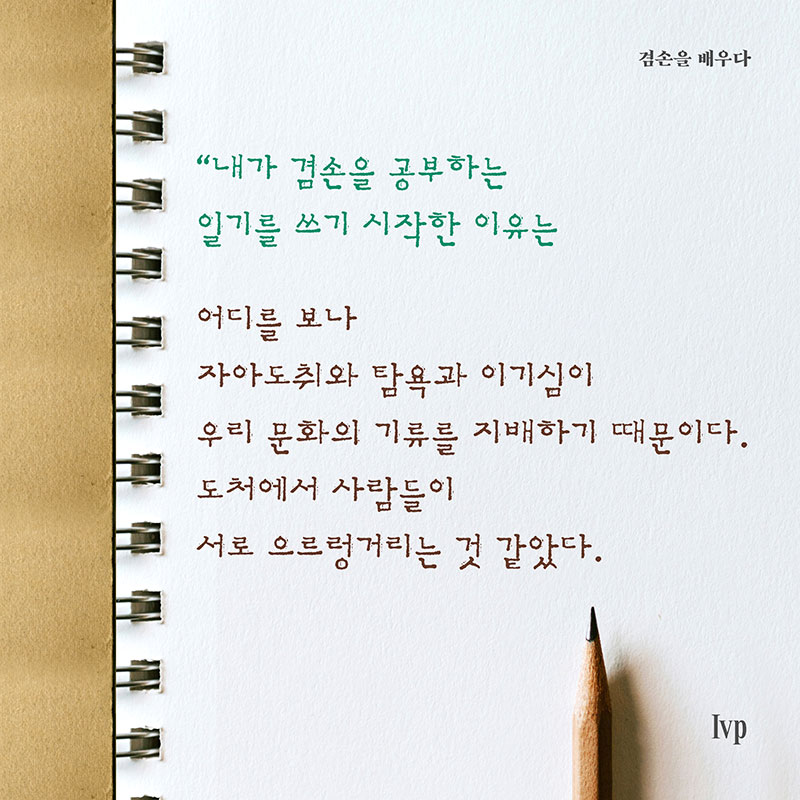 겸손을 배우다
“내가 겸손을 공부하는
일기를 쓰기 시작한 이유는
어디를 보나
자아도취와 탐욕과 이기심이
우리 문화의 기류를 지배하기 때문이다.
도처에서 사람들이
서로 으르렁거리는 것 같았다.
Ivp